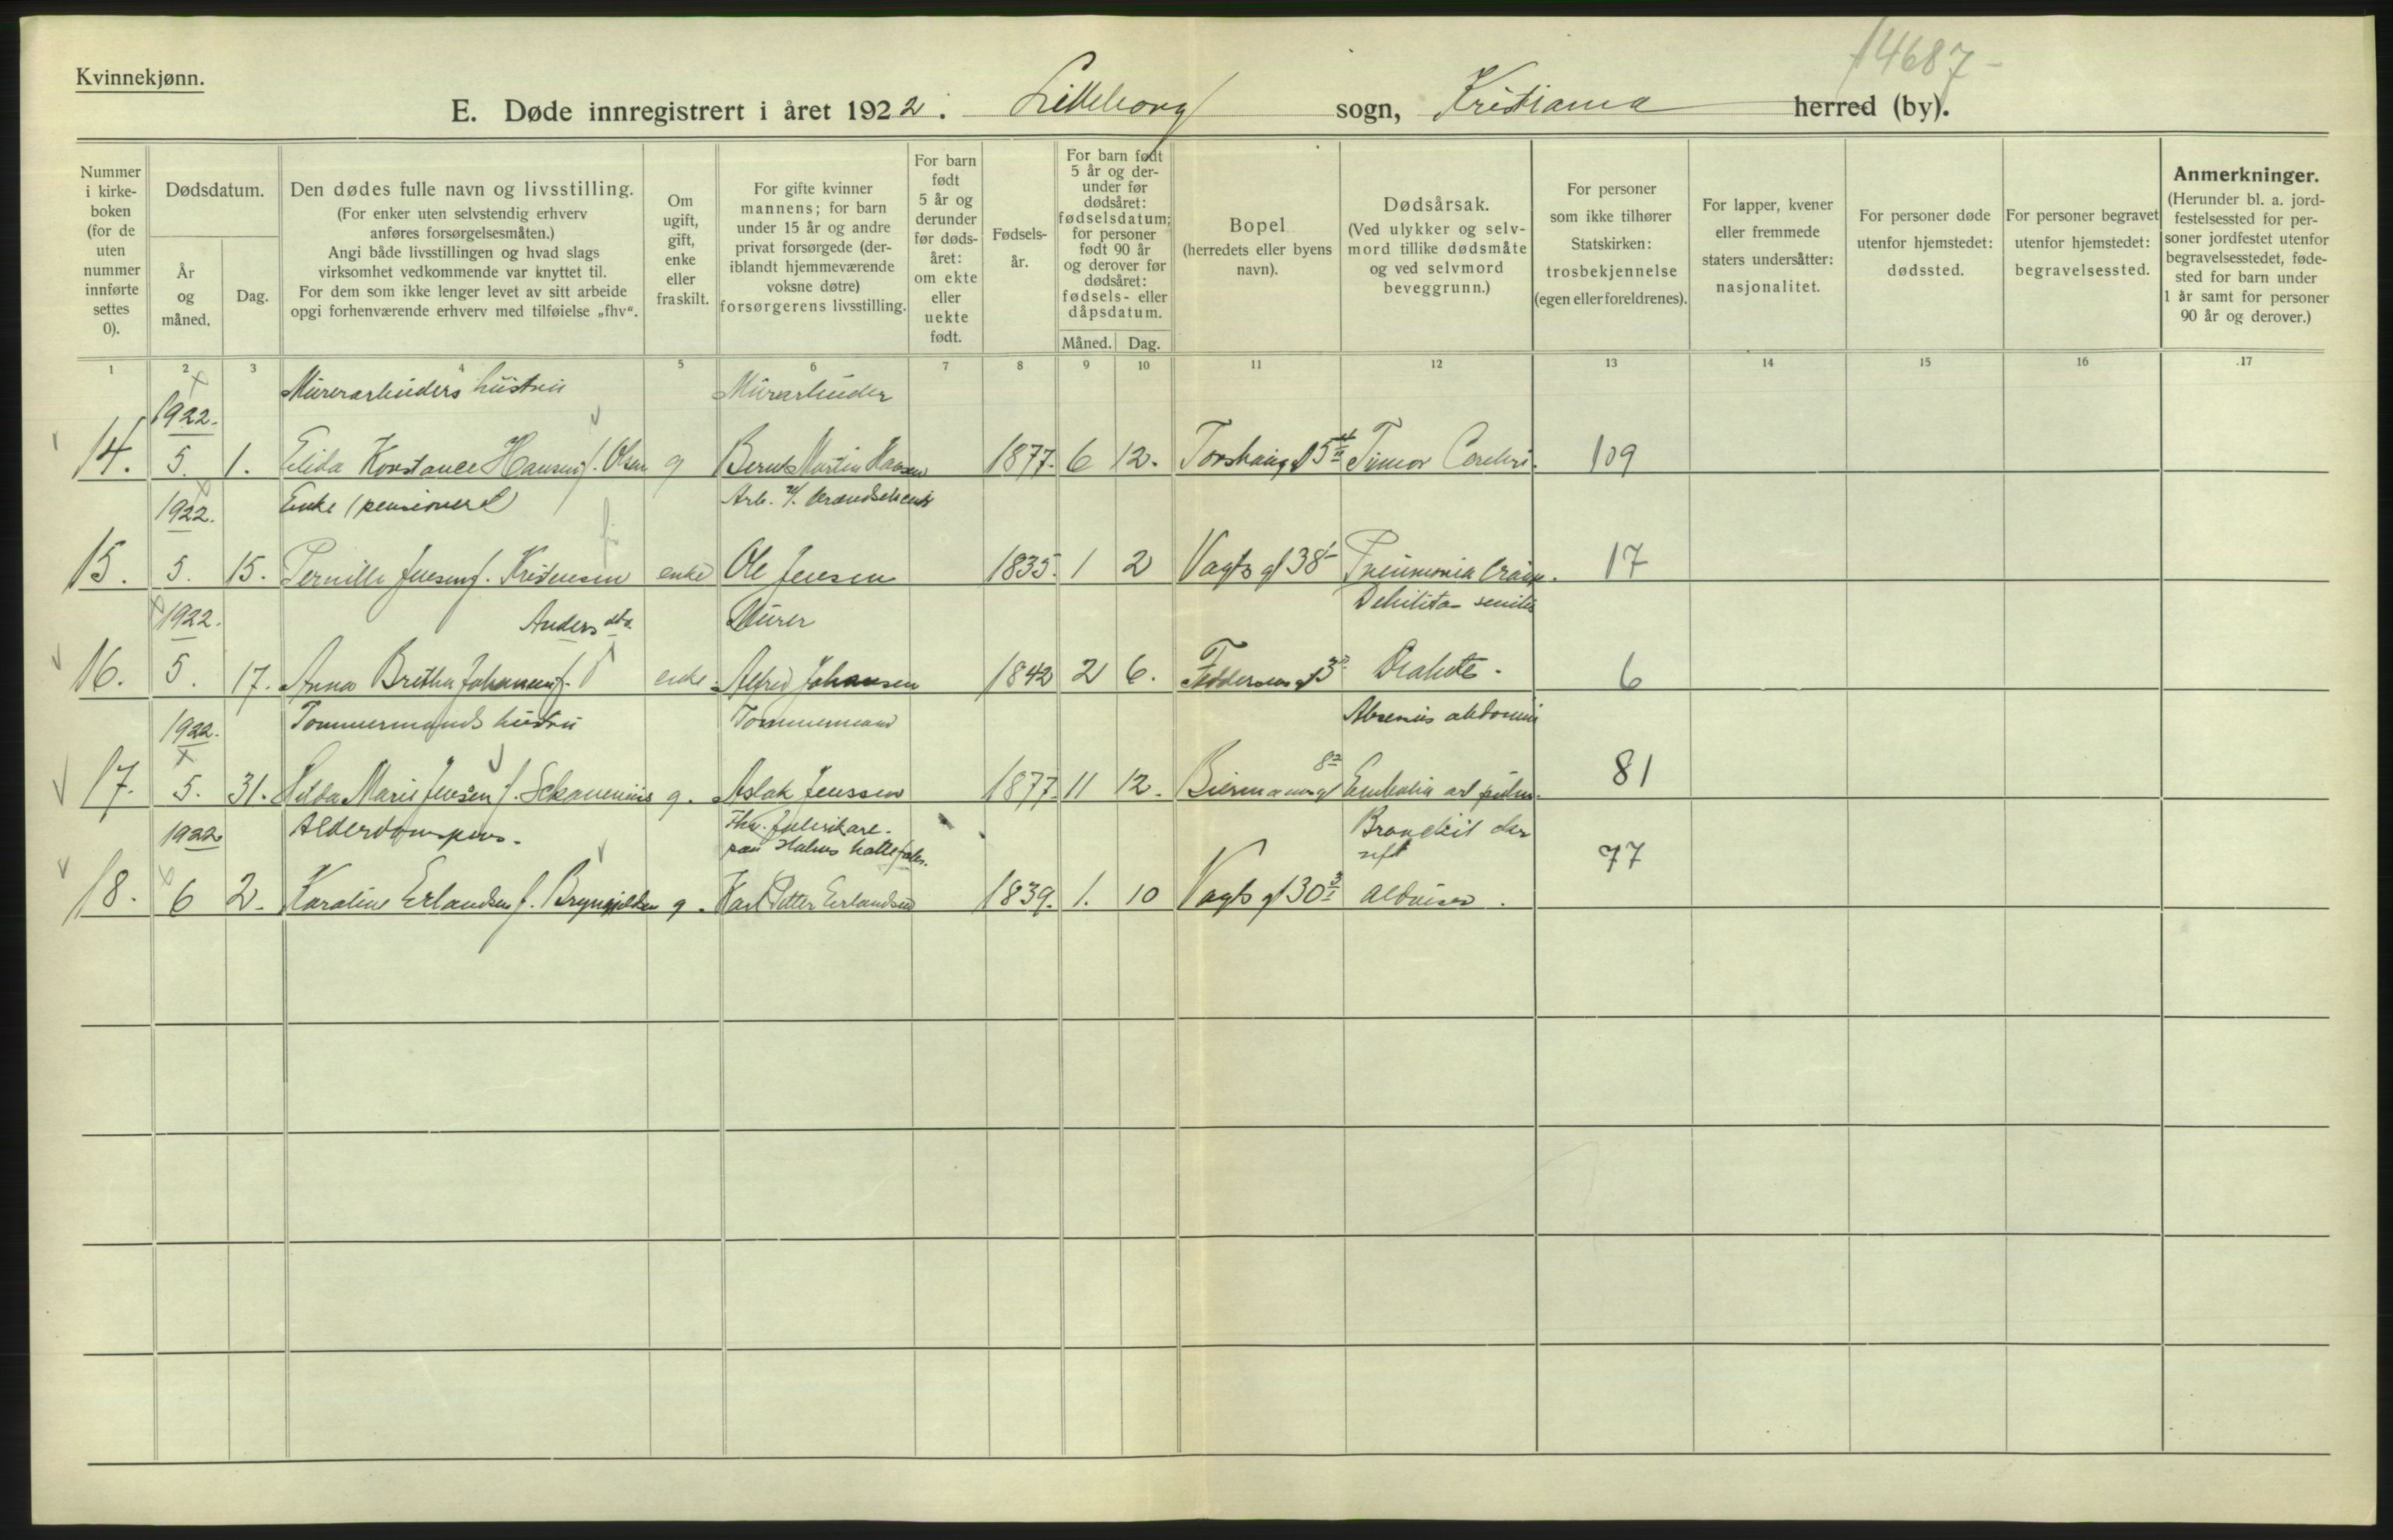 14687-
Kvinnekjønn.
E. Døde innregistrert i året 1922. Lilleborg sogn, Kristiania herred (by).
Nummer i kirke-boken (for de uten nummer innførte settes 0).
Dødsdatum.
År og måned.
Dag.
Den dødes fulle navn og livsstilling.
(For enker uten selvstendig erhverv
anføres forsørgelsesmåten.)
Angi både livsstillingen og hvad slags
virksomhet vedkommende var knyttet til.
For dem som ikke lenger levet av sitt arbeide
opgi forhenværende erhverv med tilføielse „fhv“.
Om ugift, gift, enke eller fraskilt.
For gifte kvinner
mannens; for barn
under 15 år og andre
privat forsørgede (der-
iblandt hjemmeværende
voksne døtre)
forsørgerens livsstilling.
For barn født 5 år og derunder før døds-året: om ekte eller uekte født.
Fødsels-år.
For barn født
5 år og der-
under før
dødsåret:
fødselsdatum;
for personer
født 90 år
og derover før
dødsåret:
fødsels- eller
dåpsdatum.
Måned. Dag.
Bopel
(herredets eller byens
navn).
Dødsårsak.
(Ved ulykker og selv-
mord tillike dødsmåte
og ved selvmord
beveggrunn.)
For personer
som ikke tilhører
Statskirken:
trosbekjennelse
(egen eller foreldrenes).
For lapper, kvener
eller fremmede
staters undersåtter:
nasjonalitet.
For personer døde
utenfor hjemstedet:
dødssted.
For personer begravet
utenfor hjemstedet:
begravelsessted.
Anmerkninger.
(Herunder bl. a. jord-
festelsessted for per-
soner jordfestet utenfor
begravelsesstedet, føde-
sted for barn under
1 år samt for personer
90 år og derover.)
1 2 3 4 5 6 7 8 9 10 11 12 13 14 15 16 17
1922. Murerarbeiders hustru Murarbeider
14. 5. 1. Elida Konstance Hansen f. Olsen g Bernt Martin Hansen 1877. 6 12. Torshaug gt 5 Tumor Cerebri. 109
1922. Enke (pensionert) Arb. v. brandvesenet
15. 5. 15. Pernille Jensen f. Kristensen enke Ole Jensen 1835. 1 2 Vagts gt 38 Pneumonia Croup. 17
1922. Anders dtr. Murer Debilitas senilis
16. 5. 17. Anna Bretha Johansen f. enke. Alfred Johansen 1842 2 6. Feddersens gt 3 Diabetes. 6
1922. Tømmermands hustru Tømmermand Absenus abdomin
17. 5. 31. Hilda Marie Jensen f. Schavenius g. Aslak Jenssen 1877. 11 12. Biermanns gt 8 Embolia art pulm. 81
1922 Alderdomspens. Fhv. fabrikarb. Bronchit
paa Halvs
18. 6 2. Karoline Erlandsen f. Bryngjelsen g. Karl Petter Erlandsen 1839. 1. 10 Vagts gt 30 77